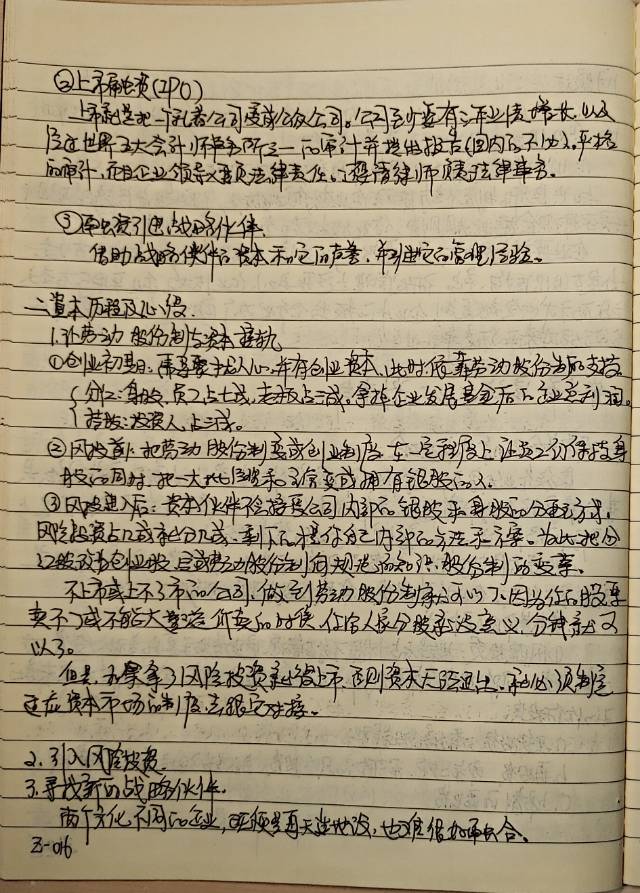 ②上市融资(IPO)
上市就是把一个私有公司变为公众公司。公司至少要有三年业绩增长,以及
经过世界五大会计师事务所之一的审计并提供报告(国内的不认)。严格
的审计,而且企业领导人要负法律责任。还要请律师负责法律事务。
③融资引进战略伙伴
借助战略伙伴的资本和它的声誉,并引进它的管理经验。
二、资本历程及心得
1.让劳动股份制与资本接轨
①创业初期:需要找人心,并有创业资本,此时依靠劳动股份制的支持。
分红:身股,员工占七成,老板占三成。拿掉企业发展基金后的企业总利润。
投资人,占三成。
②风投前:把劳动股份制变成创业制度,在一定程度上让员工们保持身
股的同时,把一大批经录用变成拥有银股的人。
③风投进入后:资本伙伴不会接受公司内部的银股和身股的分配方案,
风险投资占几成就分几成,剩下的是你自己内部的方法和方案。为此把分
红股改为创业股,完成劳动股份制向规范的知识股份制的变革。
不上市或上不了市的公司,做到劳动股份制就可以了,因为你的股票
卖不了或不能大幅溢价卖的时候,任何人民分股就没意义,分钱就可
以了。
但是,如果拿了风险投资就必须上市,否则资本无法退出。就必须制定
适应资本市场的制度去跟它对接。
2.引入风险投资
3.寻找新的战略伙伴。
两个文化不同的企业,硬须是再天造地设,也难很好的融合。
3-06